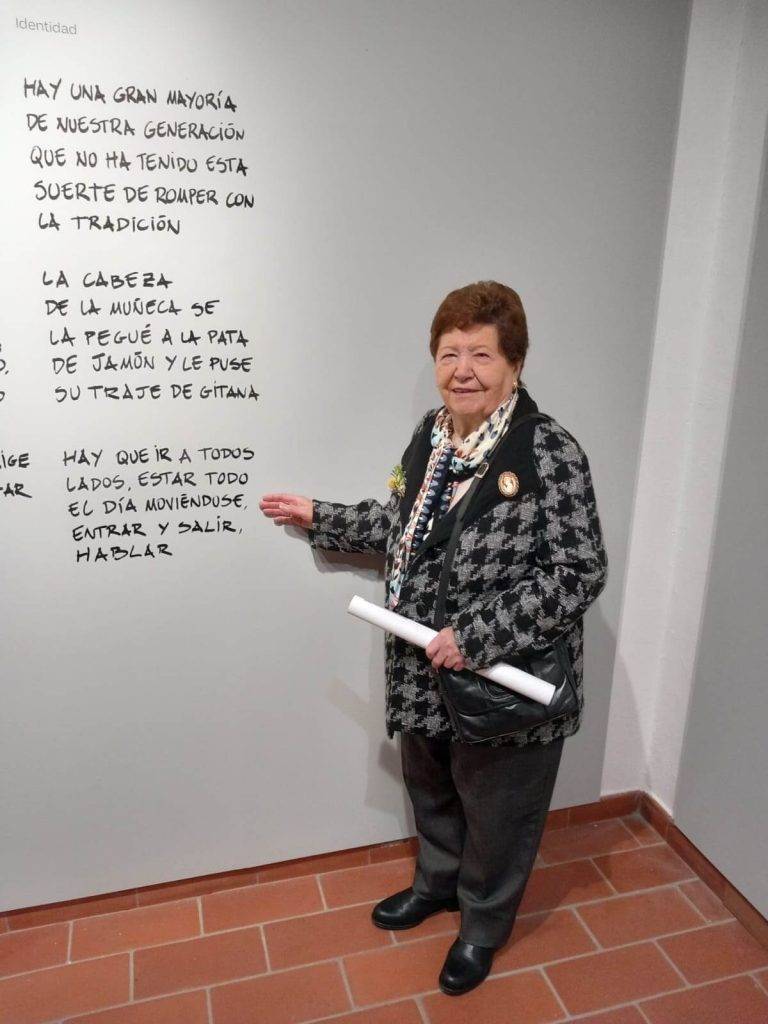 Identidad
HAY UNA GRAN MAYORÍA
DE NUESTRA GENERACIÓN
QUE NO HA TENIDO ESTA
SUERTE DE ROMPER CON
LA TRADICIÓN
LA CABEZA
DE LA MUÑECA SE
LA PEGUÉ A LA PATA
DE JAMÓN Y LE PUSE
SU TRAJE DE GITANA
HAY QUE IR A TODOS
LADOS, ESTAR TODO
EL DÍA MOVIÉNDOSE,
ENTRAR Y SALIR,
HABLAR